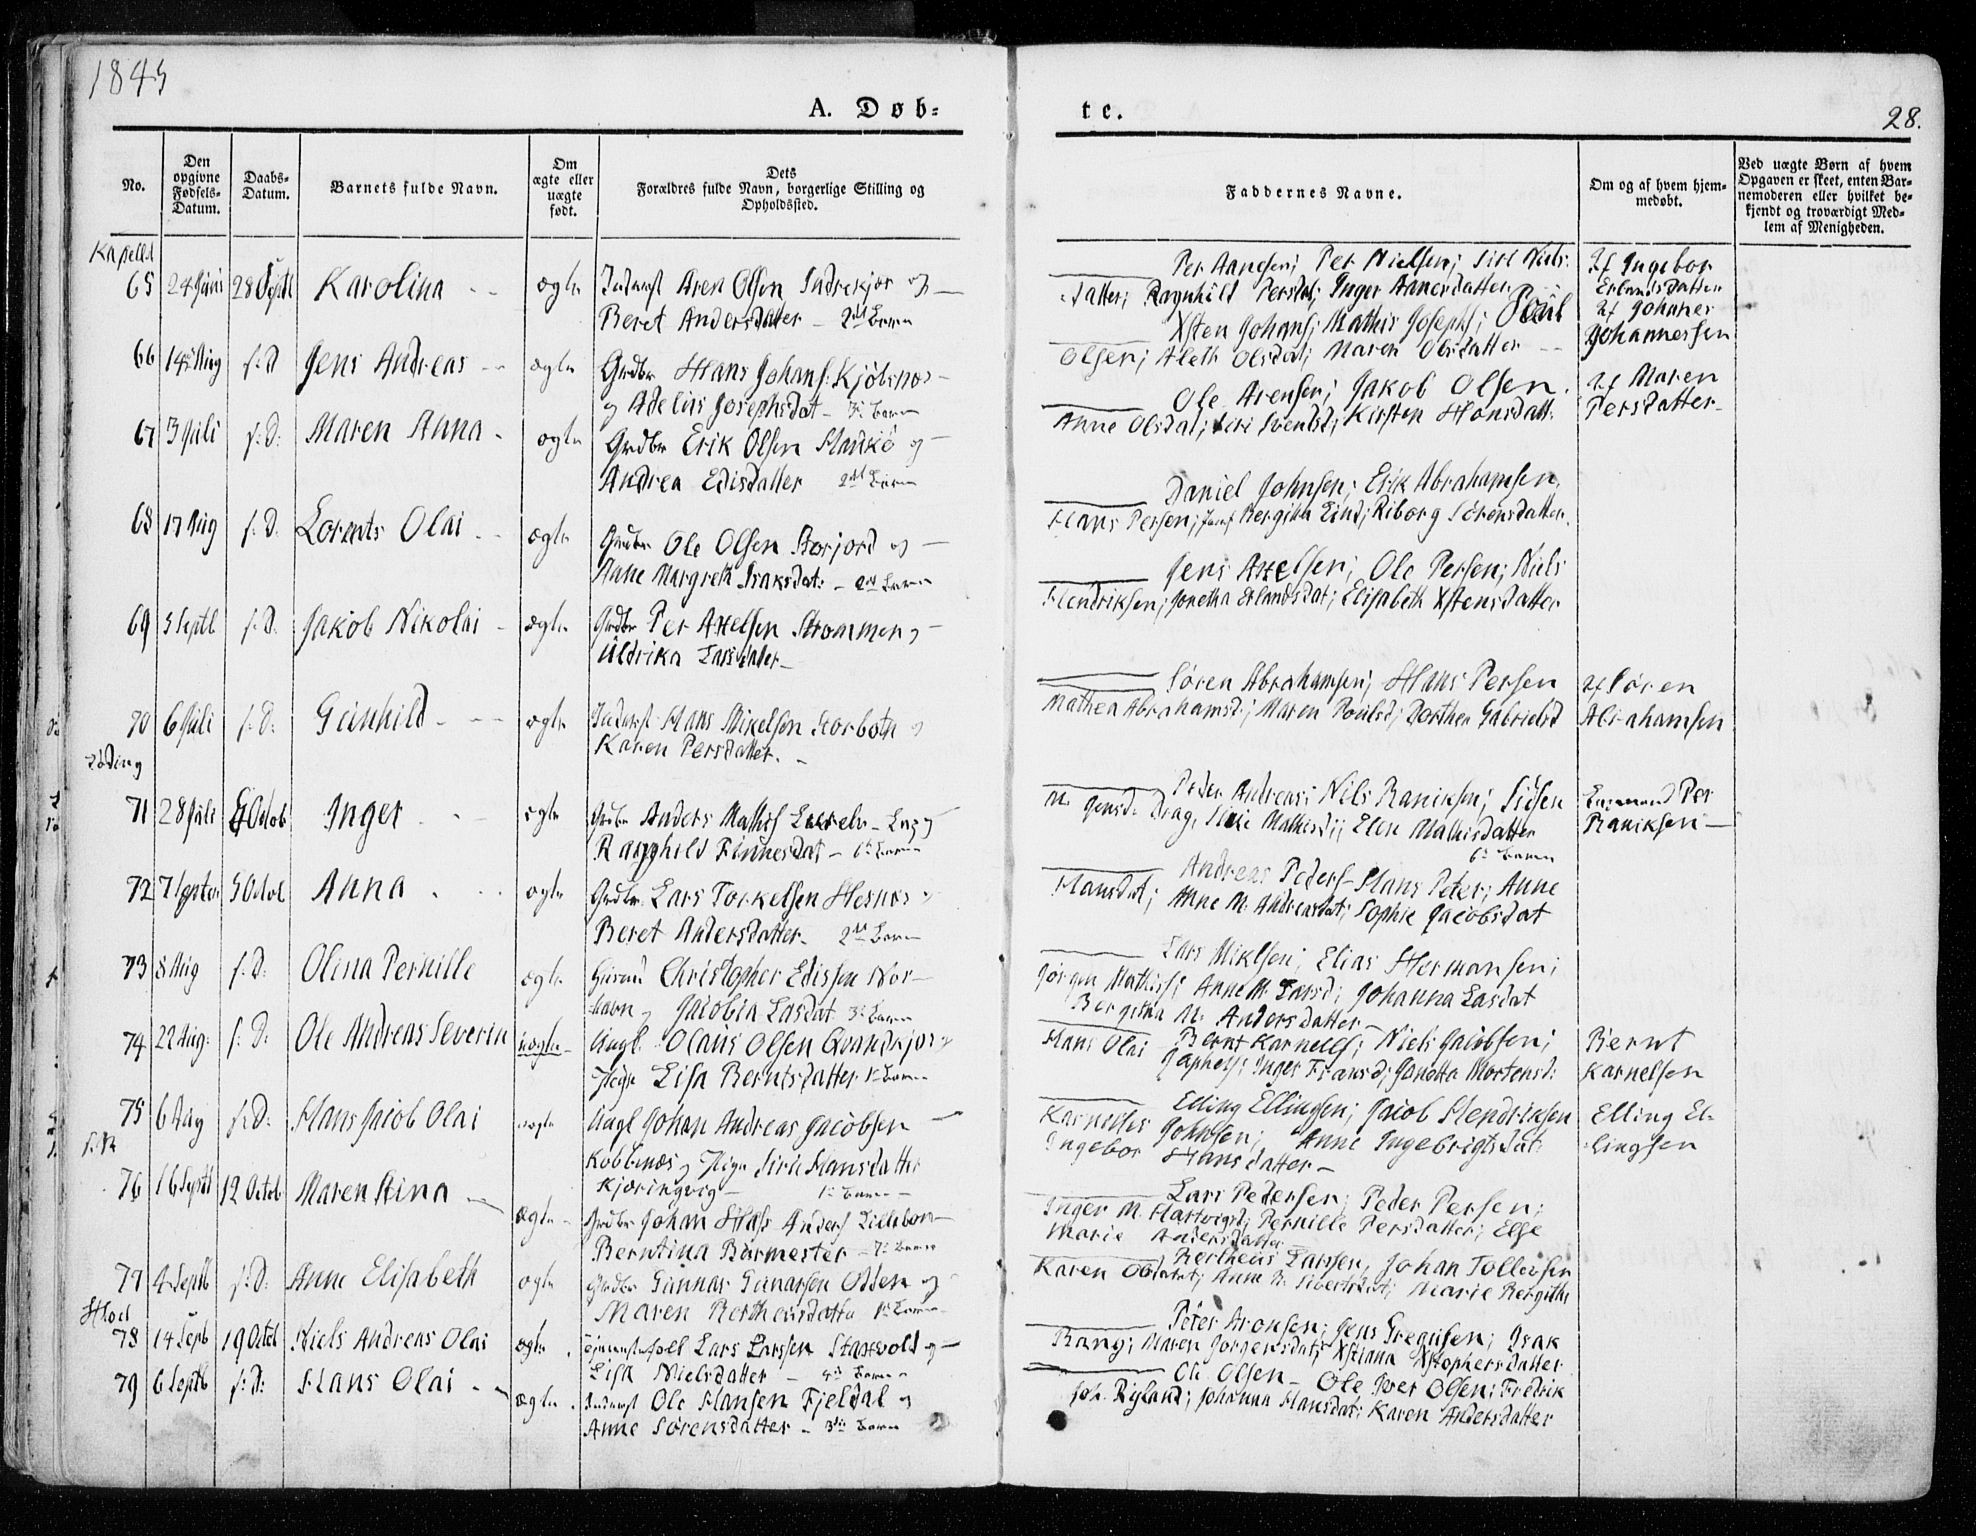 1845
A. Døb-
te.
28.
No.
Den opgivne Fødsels-Datum.
Daabs-Datum.
Barnets fulde Navn.
Om ægte eller uægte født.
Dets Forældres fulde Navn, borgerlige Stilling og Opholdssted.
Faddernes Navne.
Om og af hvem hjemmedøbt.
Ved uægte Børn af hvem Opgaven er skeet, enten Barnemoderen eller hvilket bekjendt og troværdigt Medlem af Menigheden.
65 24 Juni 28 Septl Karolina ægte Aren Olsen Indrekjør og
Beret Andersdatter 2det Barn
Per Aansen; Per Nielsen; Siri Niels-
datter; Ragnhild Persdat; Inger Annesdatter
af Ingebor
Erlandsdatter
66 14 Aug s: D Jens Andreas ægte Grdbr Hans Johans: Kjøbsnæs
og Adelus Josephsdat 3die Barn
Xsten Johans; Mathis Josephs; Poul
Olsen; Aleth Olsdat; Maren Olsdatter
af Johannes
Johannessen
67 3 Juli s: D: Maren Anna ægte Grdbr Erik Olsen og
Andrea Edisdatter 2det Barn
Ole Arensen; Jakob Olsen
Anne Olsdat; Siri Svensd; Kirsten Hansdatt:
af Maren
Persdatter
68 17 Aug s: D: Lorents Olai ægte Grdbr Ole Olsen Borjord og
Anne Margreth Isaksdat: 2det Barn
Daniel Johnsen; Erik Abrahamsen,
Hans Persen; Jomf Bergitha Lind; Riborg Sørensdatter
69 5 Septl s: D: Jakob Nikolai ægte Grdbr Per Axelsen Strømmen og
Uldrika Larsdatter
Jens Axelsen; Ole Persen; Niels
Hendriksen; Jonetha Erlandsdat; Elisabeth Xstensdatter
70 6 Juli s: D: Gunhild ægte Hans Mikelsen Storboth og
Karen Persdatter.
Søren Abrahamsen; Hans Persen
Mathea Abrahamsd; Maren Poulsd; Dorthea Gabrielsd
af Søren
Abrahamsen
71 28 Juli Octob Inger ægte Grdbr Anders Mathis
Ragnhild Finnesdat 6te Barn
Peder Andreas; Niels Raniksen;
M. Jensd. Drag, Mathisd; Elen Mathisdatter
6te Barn
Per
Raniksen
72 7 Septbr 5 Octob Anna ægte Grdbr Lars Torkelsen Hesnæs
Beret Andersdatter 2det Barn
Andreas Peders Hans Peter; Anne
Hansdat; Anne M. Andreasdat; Sophie Jacobsdat
73 8 Aug s: D: Olina Pernille ægte Christopher Edissen Nor-
havn og Jacobia Lasdat 3die Barn
Lars Miklsen; Elias Hermansen;
Jørgen Mathis; Anne M. Larsd; Johanna Lasdat
Bergitha M. Andersdatter
74 22 Aug: s: D: Ole Andreas Severin uægte Ungk: Olaus Olsen Qvandkjør
Pige Lisa Berntsdatter 1ste Barn
Hans Olai Bernt Karnelis; Niels Jacobsen;
Japhets; Inger Fransd; Jonetta Mortensd:
Bernt
Karnelsen
75 6 Aug s: D: Hans Jacob Olai uægte Ungk Johan Andreas Jacobsen
Kobbenæs og Pige Sirie Hansdatter
Kjøringvig 1ste Barn
Elling Ellingsen; Jacob Hendriksen
Karnelles Johnsen; Anne Ingebrigtsdat:
Ingebor Hansdatter
Elling El-
lingsen
76 16 Septl 12 Octob Maren Stina ægte Grdbr Johan Anders
Berntina Burmester 7de Barn
Lars Pedersen; Peder Persen;
Inger M. Hartvigsd; Pernille Persdatter; Else
Marie Andersdatter
77 4 Septb s: D: Anne Elisabeth ægte Grdbr Gunnar Gunarsen Olden og
Maren Bertheusdatter 1ste Barn
Bertheus Larssen, Johan Tollevsen
Karen Olsdat; Anne M. Sivertsdat; Marie Bergithe
78 14 Septb 19 Octob Niels Andreas Olai ægte Tjenestefolk Lars Larssen Staxvold og
Lisa Nielsdatter 4de Barn
Peter Aronsen; Jens Gregusen; Isak
Rang; Maren Jørgensdat; Xstiana Xstophersdatter
79 6 Septb s: D: Hans Olai ægte Ole Hansen Fjeldal og
Anne Sørensdatter 3die Barn
Ole Olsen Ole Iver Olsen; Fredrik
Johanna Hansdat; Karen Andersdatter